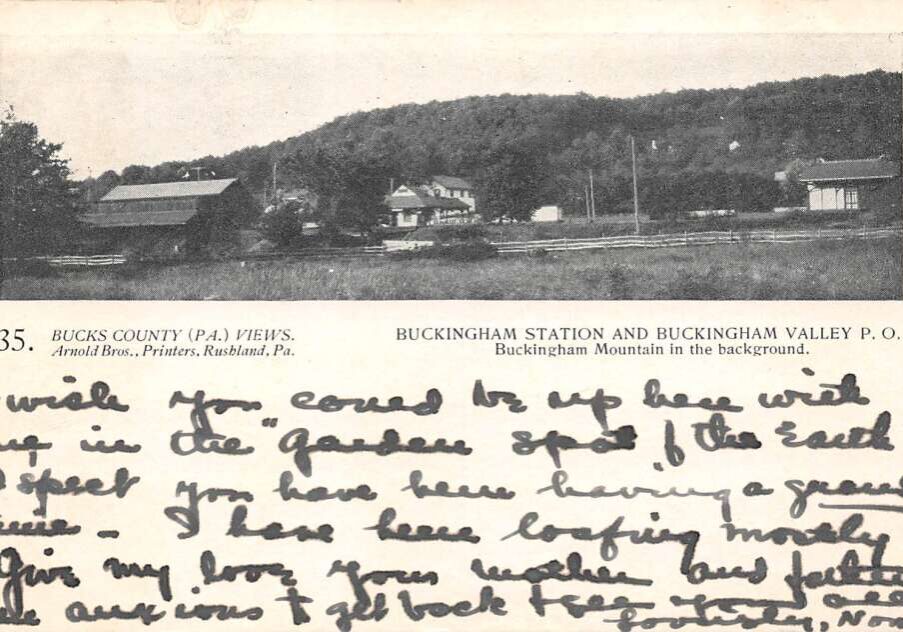 35. BUCKS COUNTY (PA.) VIEWS.
Arnold Bros., Printers, Rushland, Pa.
BUCKINGHAM STATION AND BUCKINGHAM VALLEY P. O.
Buckingham Mountain in the background.
wish you could be up here with
in the "Garden spot of the Earth
you have been having a grand
I have been loafing mostly
Give my love your mother and father
anxious to get back to see you all
Lovingly,